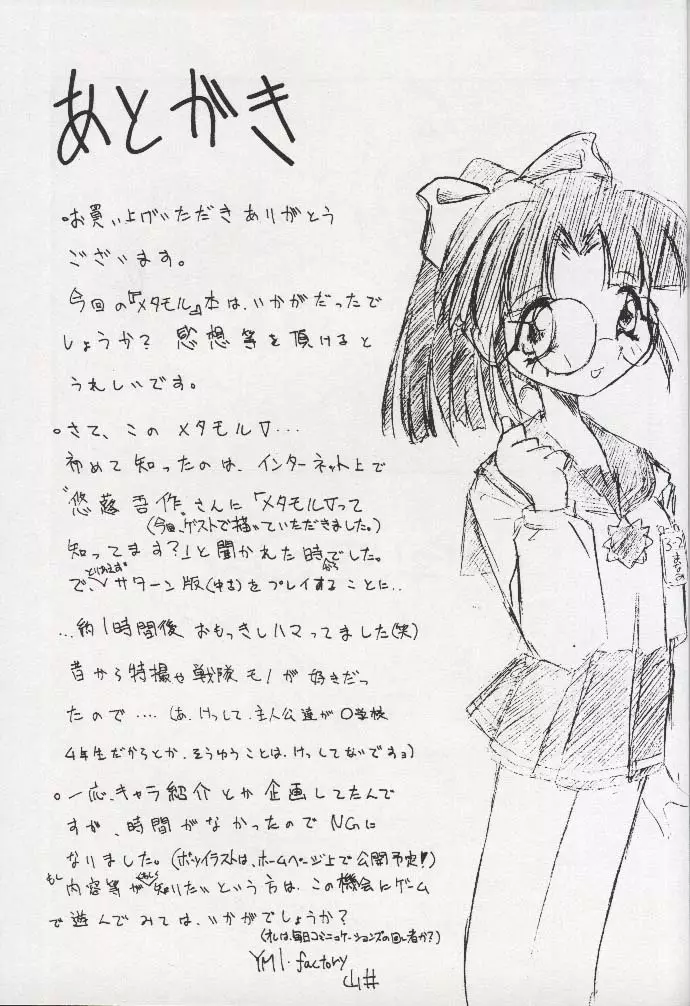 あとがき
・お買い上げいただきありがとう
ございます。
今回の『メタモル』本は、いかがだったで
しょうか？ 感想等を頂けると
うれしいです。
○さて、このメタモルV…
初めて知ったのは、インターネット上で
"悠落吾作"さんに「メタモルVって
(今回、ゲストで描いていただきました。)
知ってます？」と聞かれた時でした。
で、とりあえずサターン版(中古)をプレイすることに‥
…約1時間後 おもっきしハマってました(笑)
昔から特撮や戦隊モノが好きだっ
たので…. (あ、けっして、主人公達が〇学校
4年生だからとか、そうゆうことは、けっしてないですョ)
○一応、キャラ紹介とか企画してたんで
すが、時間がなかったのでNGに
なりました。(ボツイラストは、ホームページ上で公開予定!)
もし内容等がくわしく知りたいという方は、この機会にゲーム
で遊んでみては、いかがでしょうか？
(オレは、毎日コミュニケーションズの回し者か？)
YMI・factory
山井